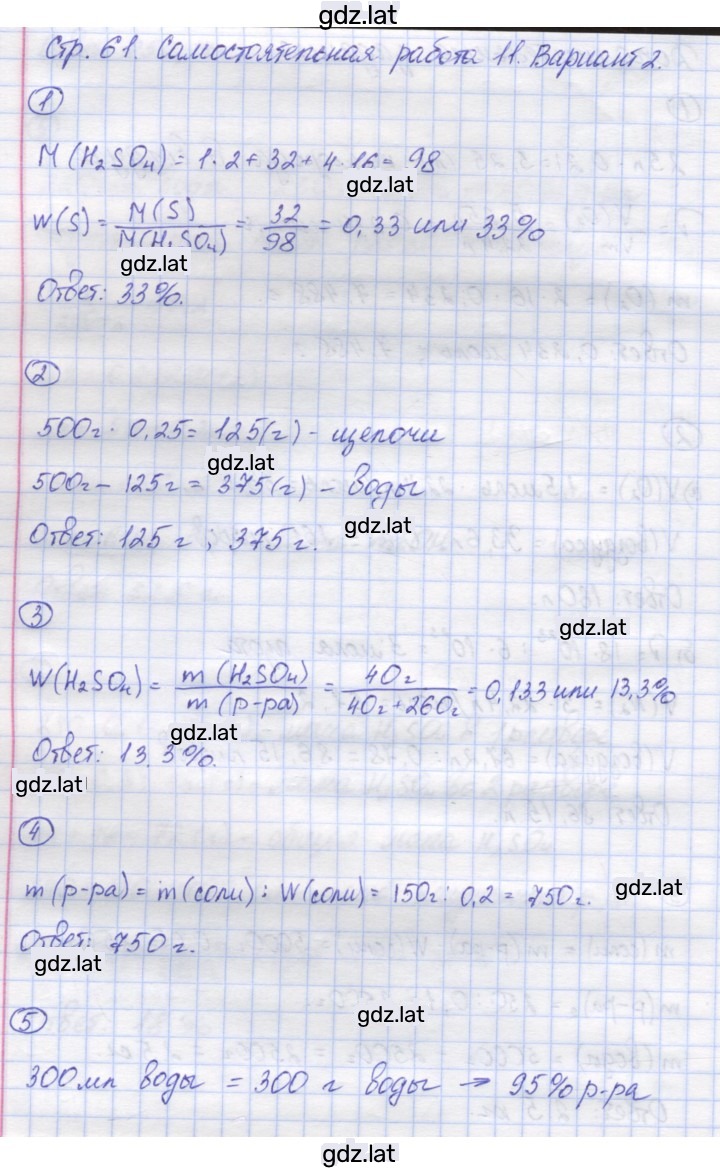 gdz.lat
Стр. 61. Самостоятельная работа 11. Вариант 2.
1
M(H₂SO₄) = 1·2+32+4·16= 98
gdz.lat
W(S) = M(S)/M(H₂SO₄) = 32/98 = 0,33 или 33%
gdz.lat
Ответ: 33%.
2
500г · 0,25= 125(г) - щелочи
gdz.lat
500г – 125г = 375(г) – воды
gdz.lat
Ответ: 125 г , 375 г.
3
gdz.lat
W(H₂SO₄) = m(H₂SO₄)/m(р-ра) = 40г/40г+260г = 0,133 или 13,3%
gdz.lat
Ответ: 13,3%.
gdz.lat
4
m(р-ра) = m(соли) : W(соли) = 150г : 0,2 = 750г.
gdz.lat
Ответ: 750 г.
gdz.lat
5
gdz.lat
300мл воды = 300 г воды → 95% р-ра
gdz.lat